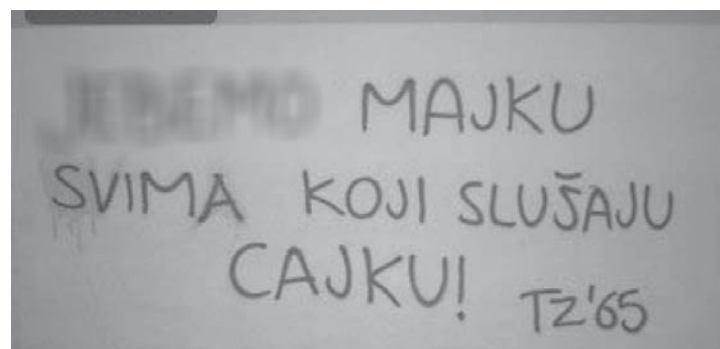 MAJKU
SVIMA KOJI SLUŠAJU
CAJKU!
TZ'65